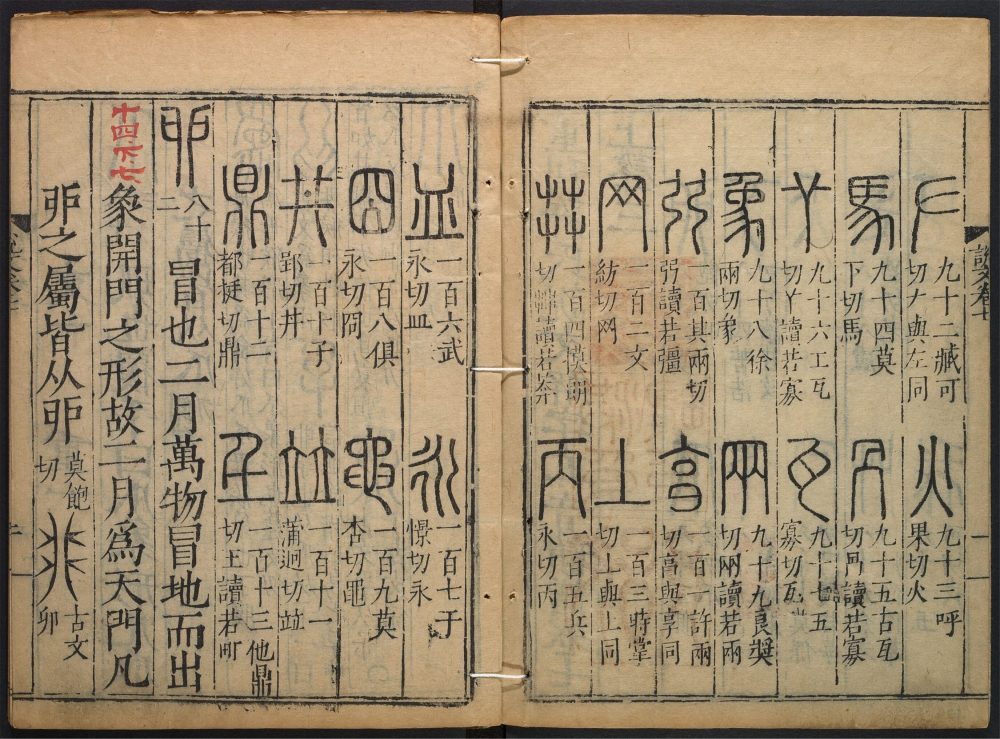 說文卷
𠂇九十二臧可切𠂇與左同 火九十三呼果切火
馬九十四莫下切馬 冎九十五古瓦切冎讀若寡
丫九十六工瓦切丫讀若寡 瓦九十七五寡切瓦
象九十八徐兩切象 㒳九十九良獎切㒳讀若兩
弜一百其兩切弜讀若彊 亯一百一許兩切亯與享同
网一百二文紡切网 丄一百三時掌切丄與上同
茻一百四模朗切茻讀若莽 丙一百五兵永切丙
皿一百六武永切皿 永一百七于憬切永
囧一百八俱永切囧 黽一百九莫杏切黽
井一百十子郢切井 竝一百十一蒲迥切竝
鼎一百十二都挺切鼎 𡈼一百十三他鼎切𡈼讀若町
戼八十二冒也二月萬物冒地而出
十四.下.七
象開門之形故二月爲天門凡
戼之屬皆从戼莫飽切 古文卯